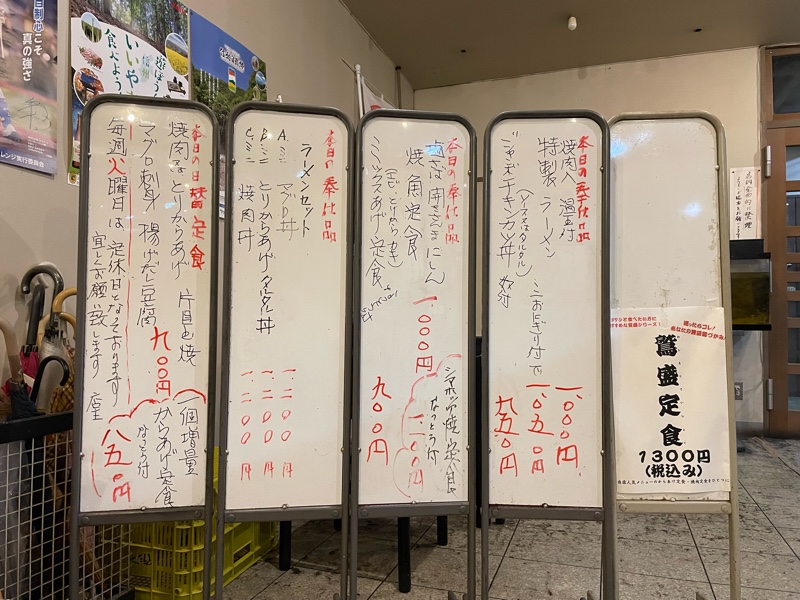 本日の日替定食
焼肉&とりからあげ 片目玉焼
マグロ刺身 揚げだし豆腐
九〇〇円
毎週火曜日は定休日となっております
宜しくお願い致します 店主
一個増量
からあげ定食
なっとう付
八五〇円
本日の奉仕品
ラーメンセット
Aミニ マグロ丼 一二〇〇円
Bミニ とりからあげタルタル丼 一二〇〇円
Cミニ 焼肉丼 一二〇〇円
本日の奉仕品
焼魚定食
一〇〇〇円
ミックスあげ定食
九〇〇円
シマホッケ焼定食
なっとう付
一一〇〇円
本日の奉仕品
焼肉 温玉付 一〇〇〇円
特製ラーメン ミニおにぎり付で 一〇五〇円
(ソースはタルタル)
ジャンボチキンカツ丼 九五〇円
鷲盛定食
1300円
(税込み)
真の強さ
レンジ実行委員会